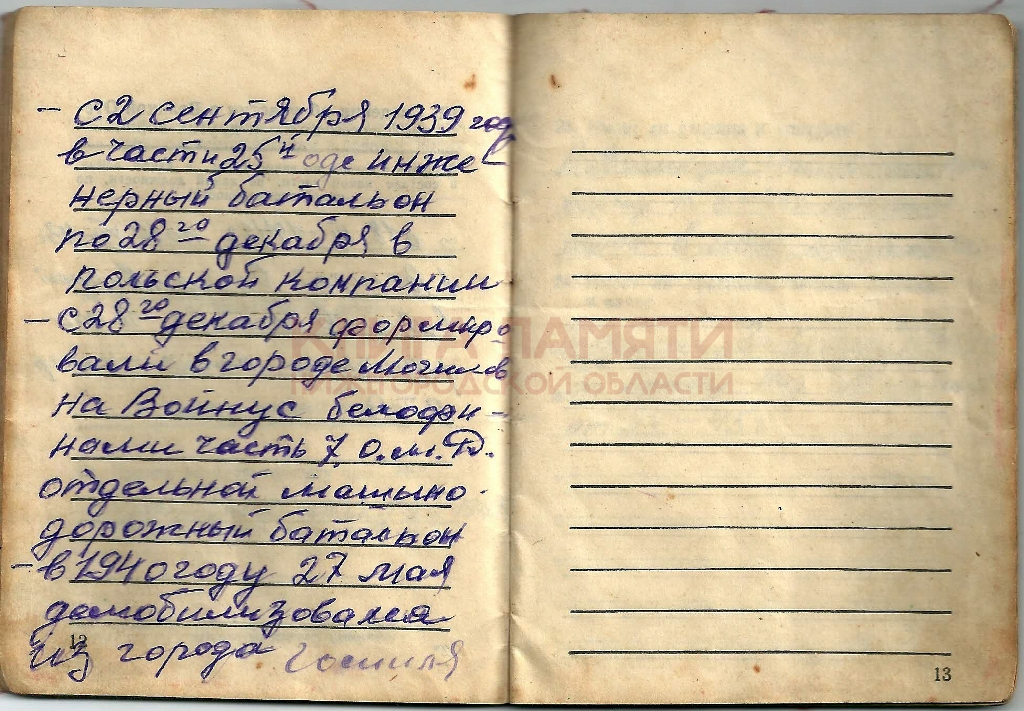 - С 2 сентября 1939 год
в части 25й оде инже
нерный баталъон
по 28го декабря в
полъской компании
- С 28го декабря формиро
вали в городе Могилов
на Войнус белофи-
нами часть 7. О.м.Д.
отдельной машино-
дорожный баталъон
- в 1940 году 27 мая
демобилизовался
из города
12
13
КНИГА ПАМЯТИ
НИЖЕГОРОДСКОЙ ОБЛАСТИ